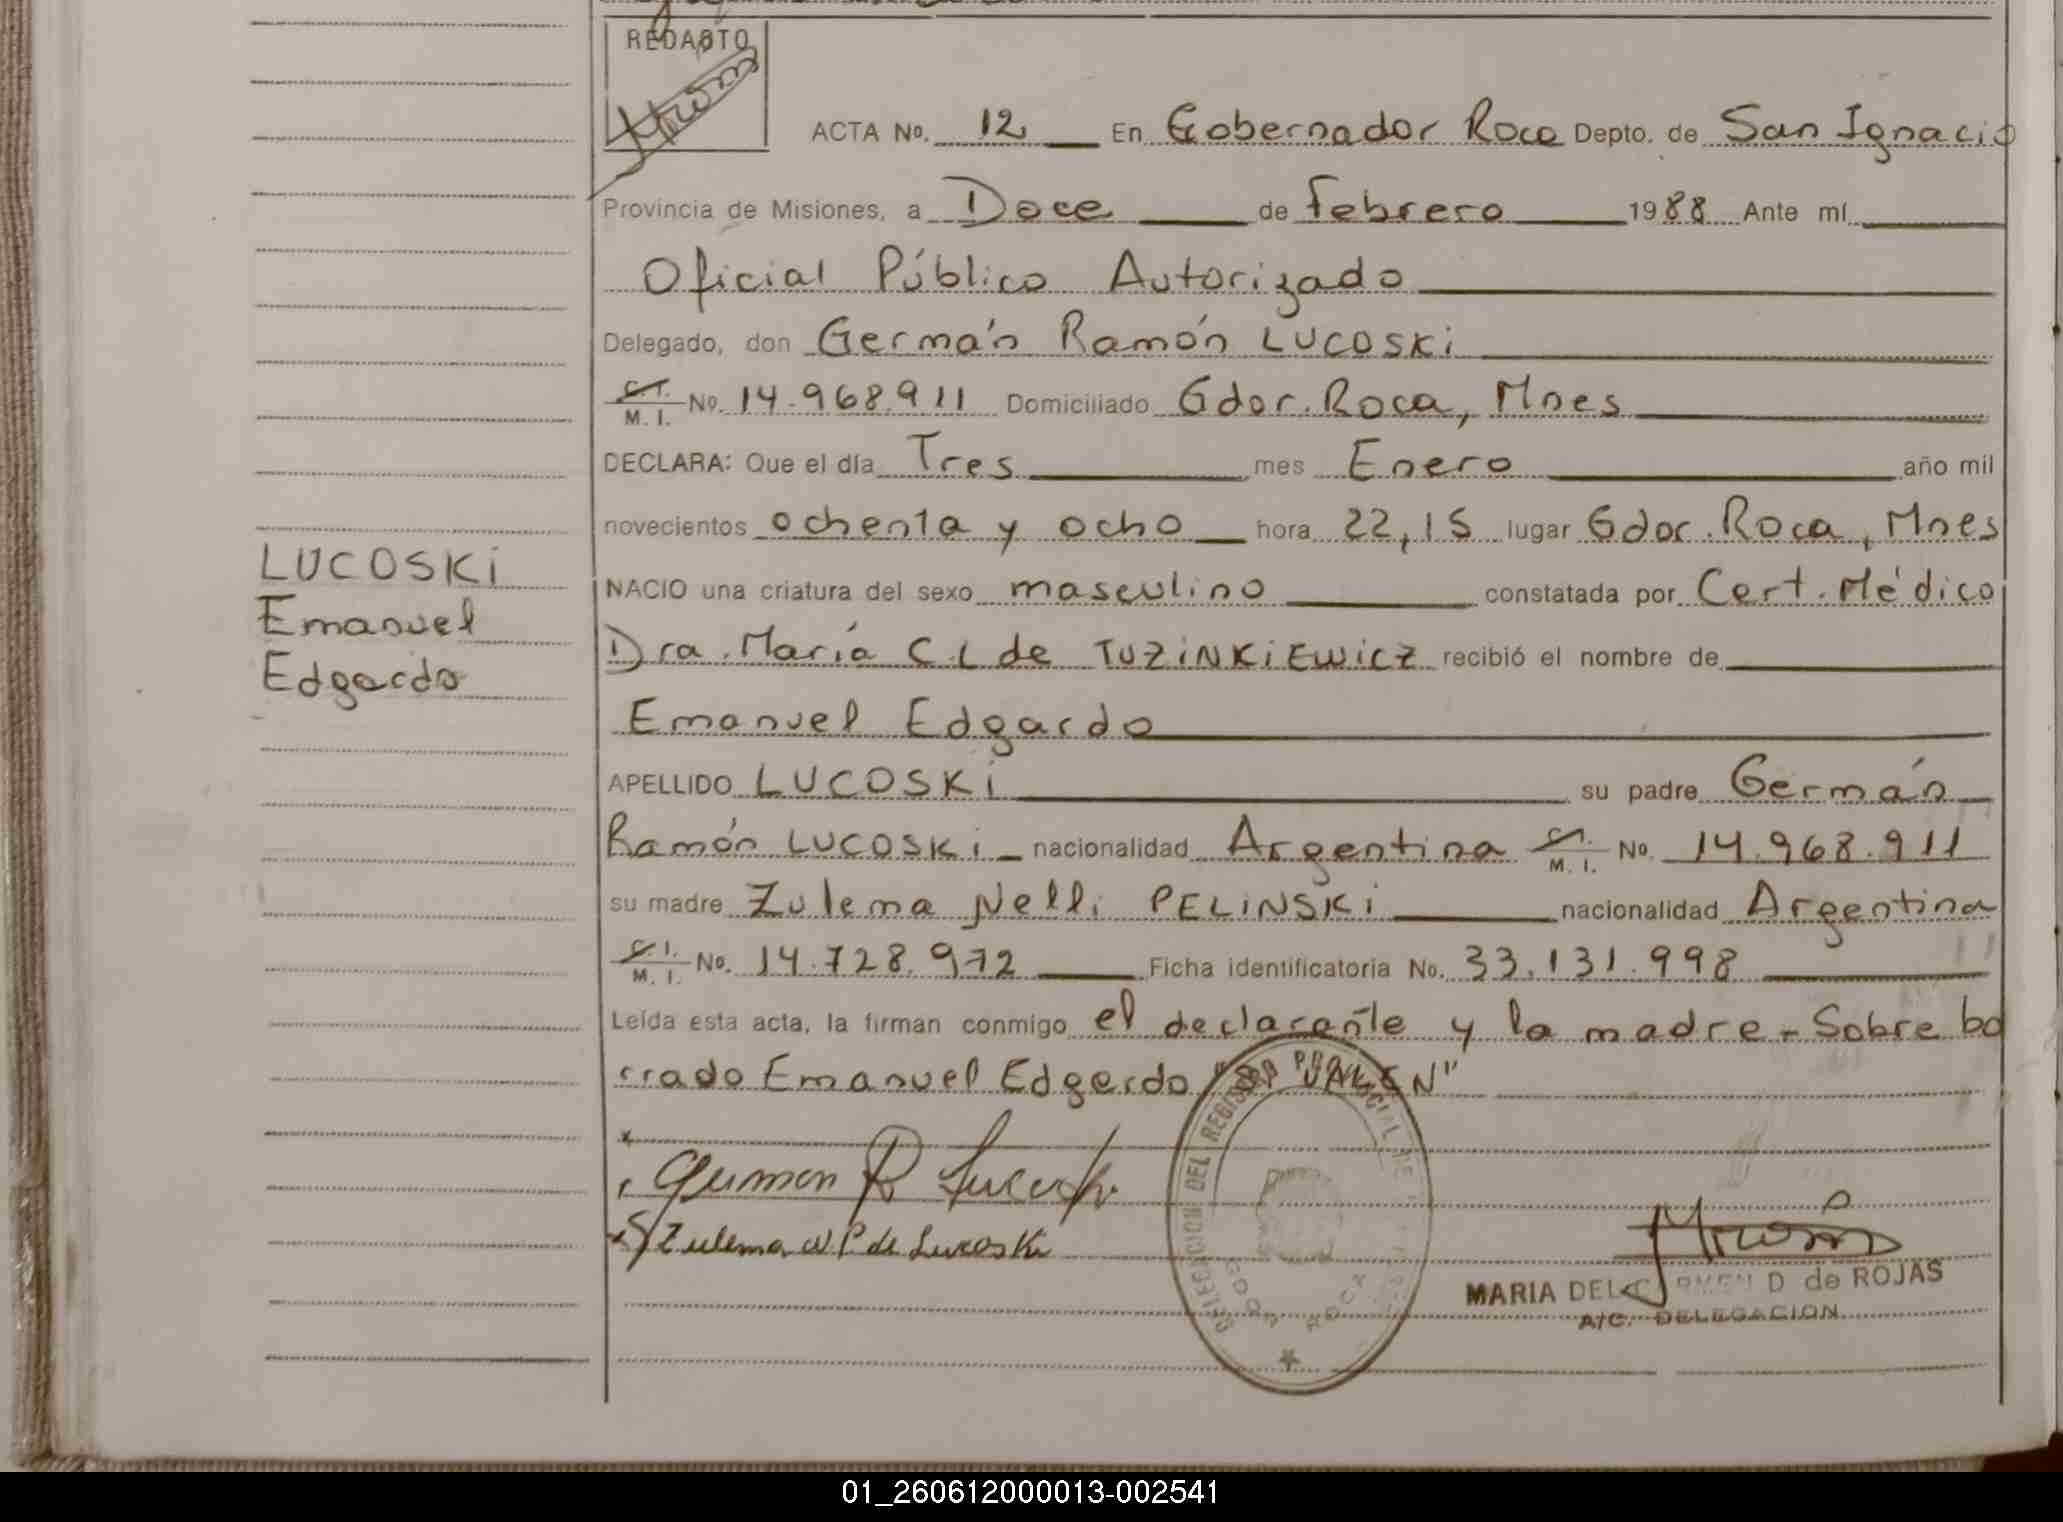 REDACTO
ACTA No. 12 En Gobernador Roca Depto. de San Ignacio
Provincia de Misiones, a Doce de febrero 1988 Ante mí
Oficial Público Autorizado
Delegado, don Germán Ramón LUCOSKi
C.I. / M. I. No. 14.968.911 Domiciliado Gdor. Roca, Mnes
DECLARA: Que el día Tres mes Enero año mil
novecientos ochenta y ocho hora 22,15 lugar Gdor. Roca, Mnes
LUCOSKi
NACIO una criatura del sexo masculino constatada por Cert. Médico
Emanuel
Dra. María C. L de TUZiNKiEwicz recibió el nombre de
Edgardo
Emanuel Edgardo
APELLIDO LUCOSKi su padre Germán
Ramón LUCOSKi nacionalidad Argentina C.I. / M. I. No. 14.968.911
su madre Zulema Nelli PELiNSKi nacionalidad Argentina
C.I. / M. I. No. 14.728.972 Ficha identificatoria No. 33.131.998
Leída esta acta, la firman conmigo el declarante y la madre - Sobre bo
rrado Emanuel Edgardo "VALEN"
German R Lucoski
Zulema N P. de Lucoski
DIRECCION DEL REGISTRO PROVINCIAL DE
MARIA DEL CARMEN D de ROJAS
A/C. DELEGACION
01_260612000013-002541